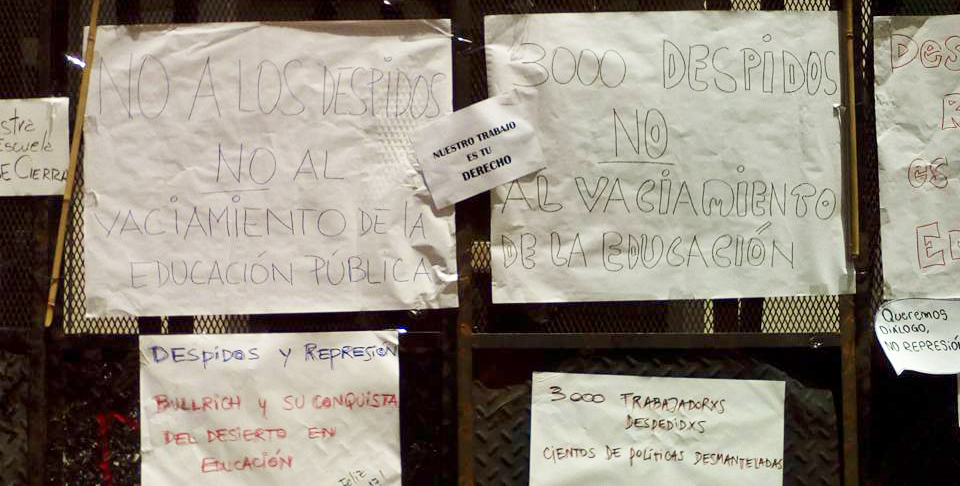 stra
Escuela
SE CIERRA
NO A LOS DESPIDOS
NO AL
VACIAMIENTO DE LA
EDUCACIÓN PÚBLICA
NUESTRO TRABAJO
ES TU
DERECHO
3000 DESPIDOS
NO
AL VACIAMIENTO
DE LA EDUCACIÓN
Des
es
Queremos
DIALOGO,
NO REPRESIÓN
DESPIDOS Y REPRESION
BULLRICH Y SU CONQUISTA
DEL DESIERTO EN
EDUCACIÓN
Feliz
3000 TRABAJADORXS
DESPEDIDXS
CIENTOS DE POLÍTICAS DESMANTELADAS